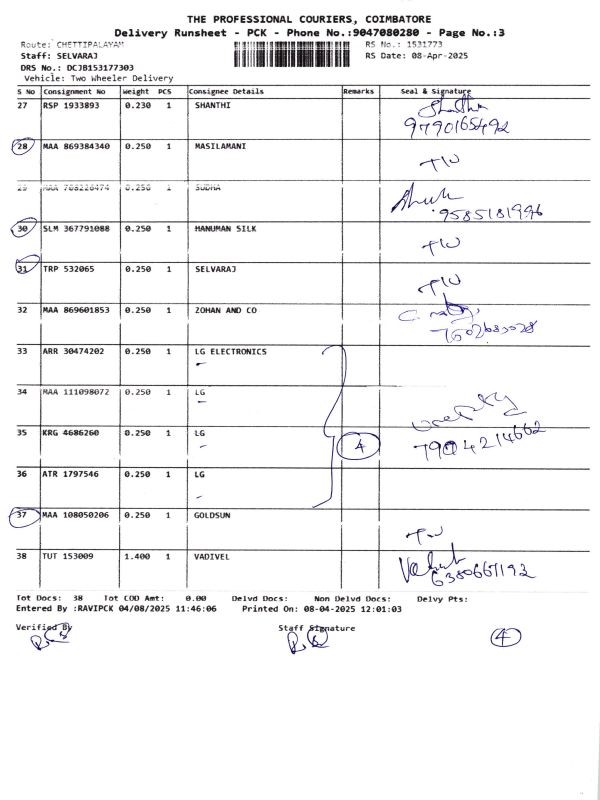 THE PROFESSIONAL COURIERS, COIMBATORE
Delivery Runsheet - PCK - Phone No.:9047080280 - Page No.:3
Route: CHETTIPALAYAM RS No.: 1531773
Staff: SELVARAJ RS Date: 08-Apr-2025
DRS No.: DCJB153177303
Vehicle: Two Wheeler Delivery
S No Consignment No Weight PCS Consignee Details Remarks Seal & Signature
27 RSP 1933893 0.230 1 SHANTHI
9790165492
28 MAA 869384340 0.250 1 MASILAMANI
29 MAA 768228474 0.250 1 SUDHA
9585181996
30 SLM 367791088 0.250 1 HANUMAN SILK
31 TRP 532065 0.250 1 SELVARAJ
32 MAA 869601853 0.250 1 ZOHAN AND CO
33 ARR 30474202 0.250 1 LG ELECTRONICS
34 MAA 111098072 0.250 1 LG
35 KRG 4686260 0.250 1 LG 4 7904214662
36 ATR 1797546 0.250 1 LG
37 MAA 108050206 0.250 1 GOLDSUN
38 TUT 153009 1.400 1 VADIVEL
6380661192
Tot Docs: 38 Tot COD Amt: 0.00 Delvd Docs: Non Delvd Docs: Delvy Pts:
Entered By :RAVIPCK 04/08/2025 11:46:06 Printed On: 08-04-2025 12:01:03
Verified By Staff Signature 4